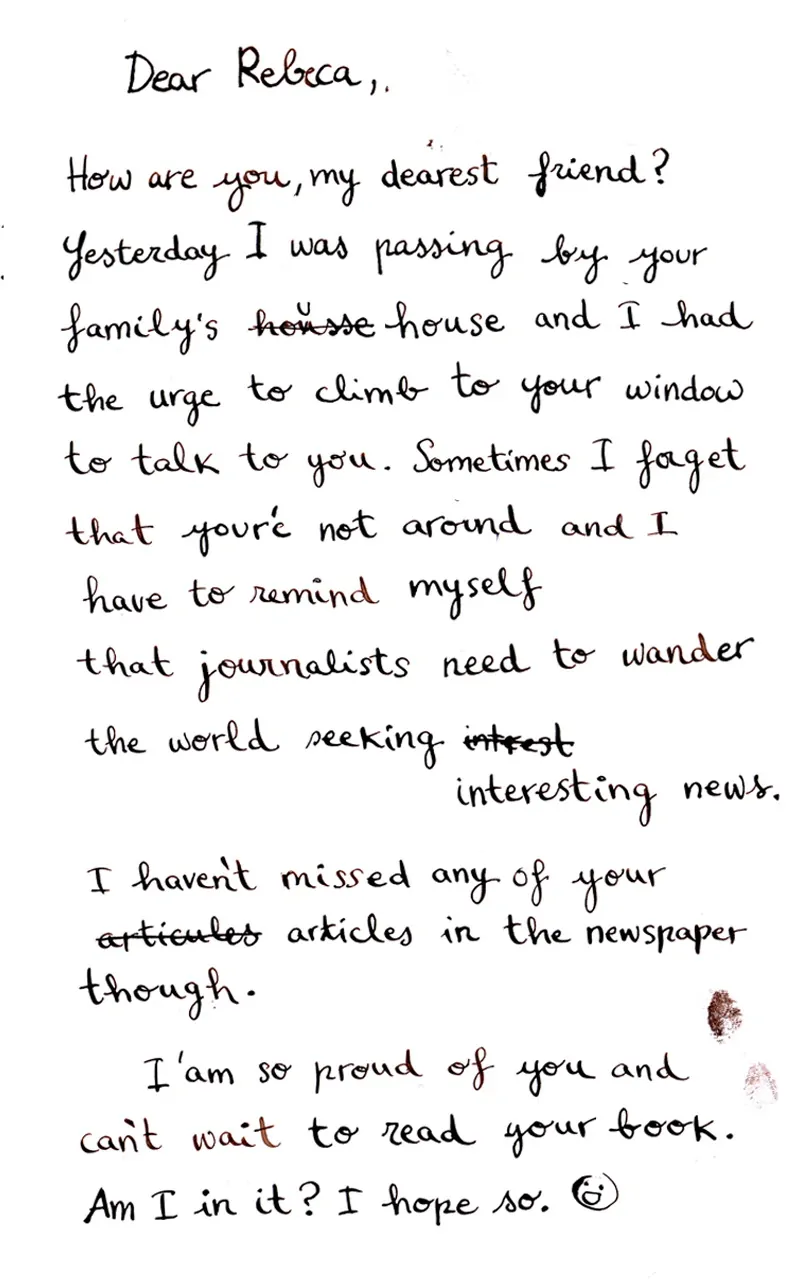 Dear Rebeca,.
How are you, my dearest friend?
Yesterday I was passing by your
family's housse house and I had
the urge to climb to your window
to talk to you. Sometimes I forget
that your'e not around and I
have to remind myself
that journalists need to wander
the world seeking intrest
interesting news.
I haven't missed any of your
articules articles in the newspaper
though.
I'am so proud of you and
can't wait to read your book.
Am I in it? I hope so. 😃